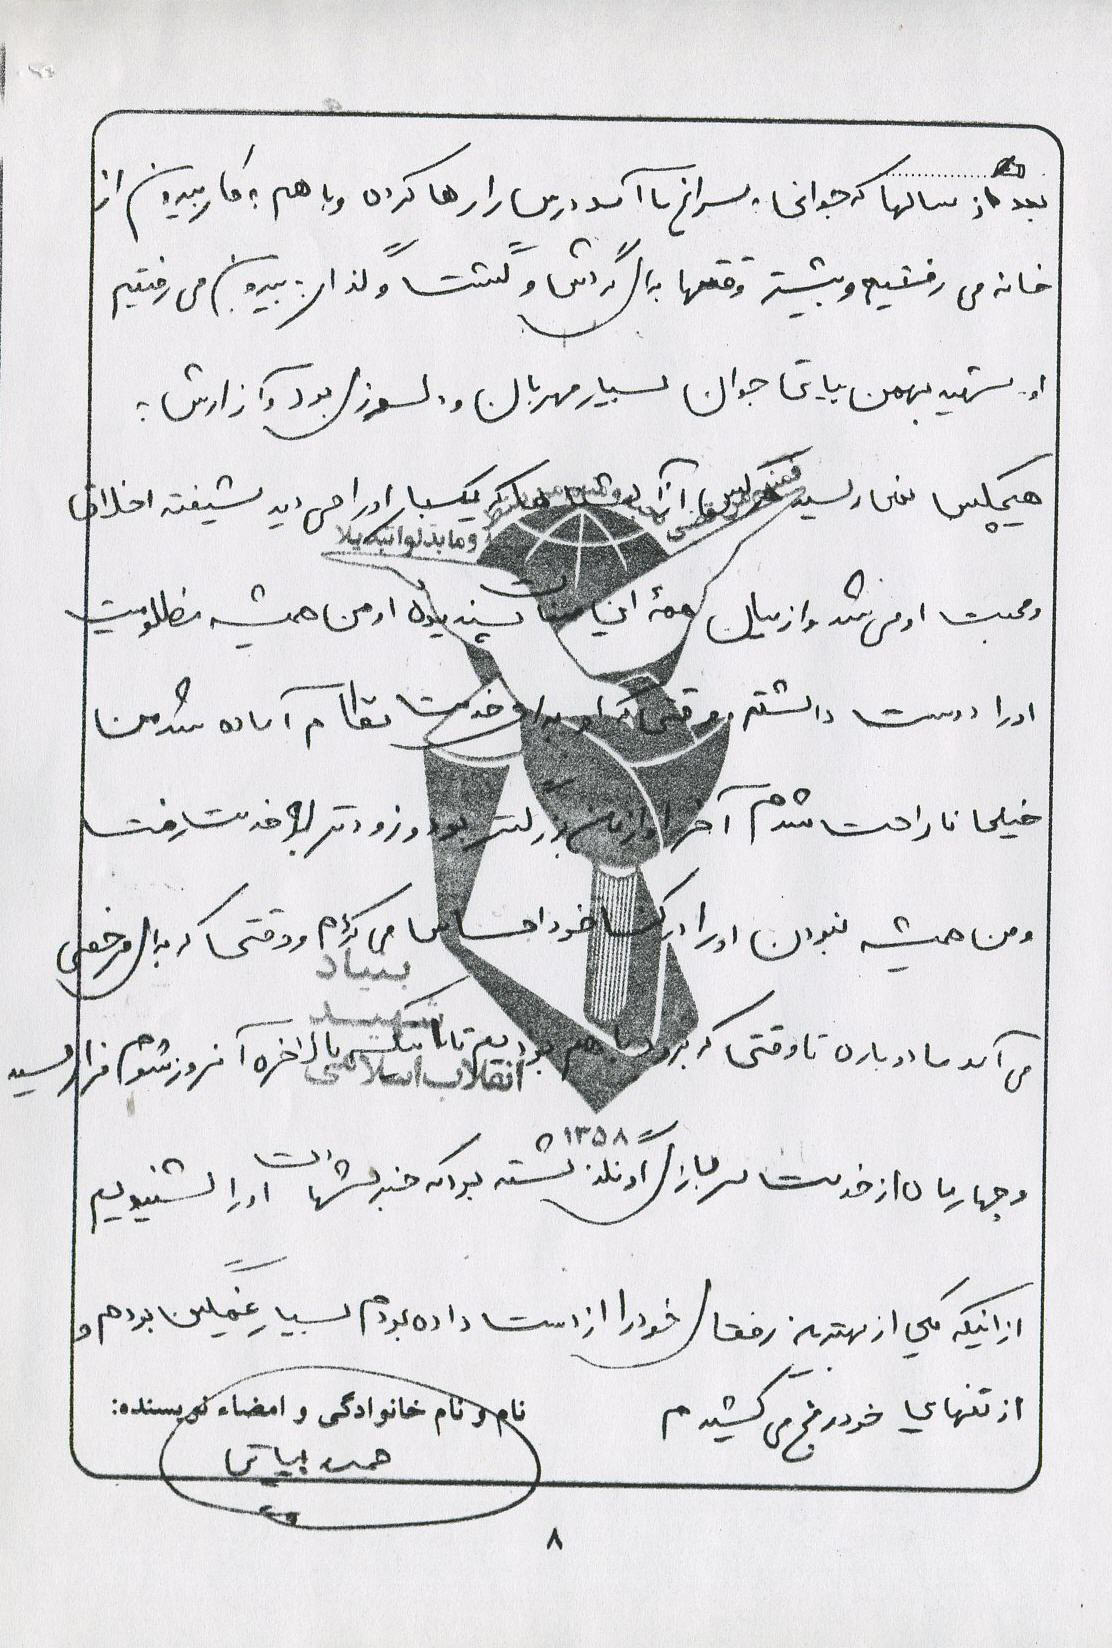 بعد از سالها که جوانی به سراغ ما آمد درس را رها کرده و با هم به کار بیرون از
خانه می رفتیم و بیشتر وقتها برای گردش و گشت و گذار به بیرون می رفتیم
او شهید بهمن بیاتی جوان بسیار مهربان و دلسوزی بود و آزارش به
هیچکس نمی رسید هرکس یکبار او را می دید شیفته اخلاق
و محبت او می شد و از میان همه این صفات پسندیده او من همیشه مظلومیت
او را دوست داشتم وقتی که او برای خدمت نظام آماده شد من
خیلی ناراحت شدم آخر او از من بزرگتر بود و زودتر به خدمت رفت
و من همیشه نبودن او را در کنار خود احساس می کردم و وقتی که برای مرخصی
می آمد ما دوباره تا وقتی که برود با هم بودیم تا اینکه بالاخره آنروز شوم فرا رسید
و چهار ماه از خدمت سربازی او نگذشته بود که خبر شهادت او را شنیدیم
از اینکه یکی از بهترین رفقای خود را از دست داده بودم بسیار غمگین بودم و
از تنهایی خود رنج می کشیدم
نام و نام خانوادگی و امضاء نویسنده:
بیاتی
وما بدلوا تبدیلا
بنیاد
شهید
انقلاب اسلامی
۱۳۵۸
۸